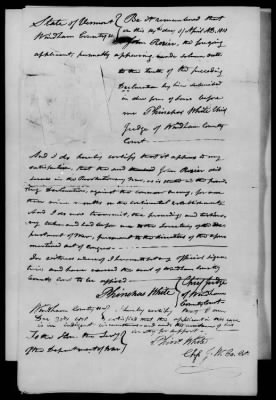 State of Vermont { Be it remembered that
Windham County ss. on this day of April AD. 1818
John Rosier, the foregoing
applicant, personally appearing made solemn oath
to the truth of the preceding
Declaration by him subscribed
in due form of law before
me Phinehas White Chief
Judge of Windham County
Court
And I do hereby certify that it appears to my
satisfaction, that the said John Rosier did
serve in the Revolutionary War, as is stated in the
Declaration, against the common enemy, for
nine months on the continental establishment.
And I do now transmit, the proceedings and testimony
taken and had before me to the Secretary of the
Department of War, pursuant to the directions of the
act of Congress.
In witness whereof, I hereunto set my official signature
and have caused the seal of Windham County
Court to be affixed
Phinehas White { Chief Judge
of Windham
County Court
Windham County ss. I hereby certify that I am
satisfied that the applicant in this case
is in indigent circumstances and
for support.
To the Hon. the Secy } Phins White
of the Department of War } Chf. J. W. Co. Ct.